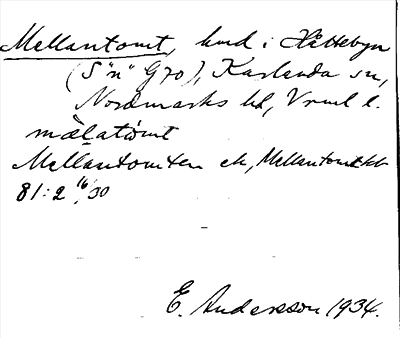 Mellantomt, hmd i Håttebyn
(S"n" G70), Karlanda sn,
Nordmarks hd, Vrml l.
mæ̀latòmt
Mellantomten ek, Mellantomtkb
81:2 16/30
E. Andersson 1934.